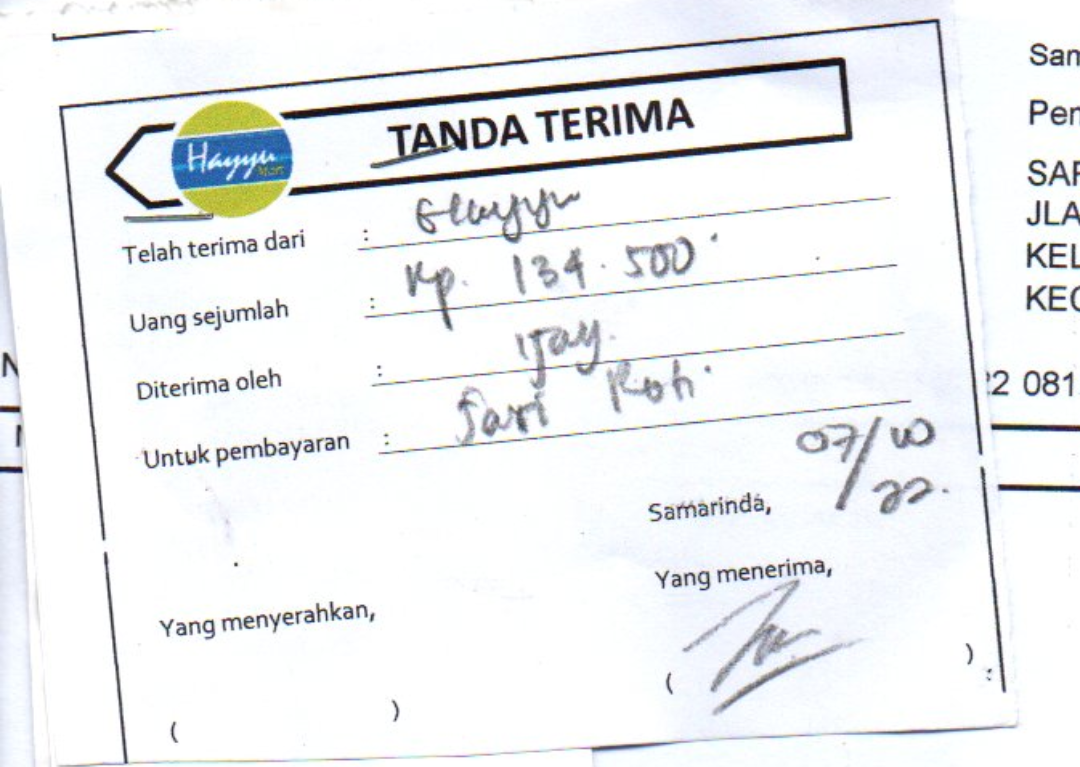 Hayyu
Mart
TANDA TERIMA
Telah terima dari : Hayyu
Uang sejumlah : Rp. 134.500
Diterima oleh :
Untuk pembayaran : Sari Roti
Samarinda, 07/10/22.
Yang menyerahkan,
Yang menerima,
( )
( )
Sam
Pen
SAR
JLA
KEL
KEC
22 081